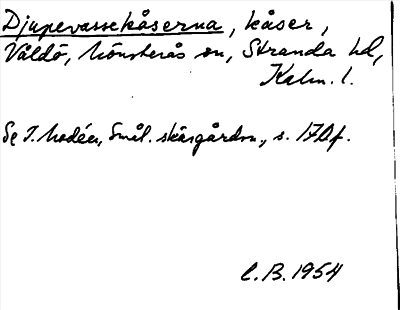 Djupevassekåserna, kåser,
Våldö, Mönsterås sn, Stranda hd,
Kalm. l.
Se I. Modéer, Smål. skärgårdsn., s. 170f.
C.B. 1954